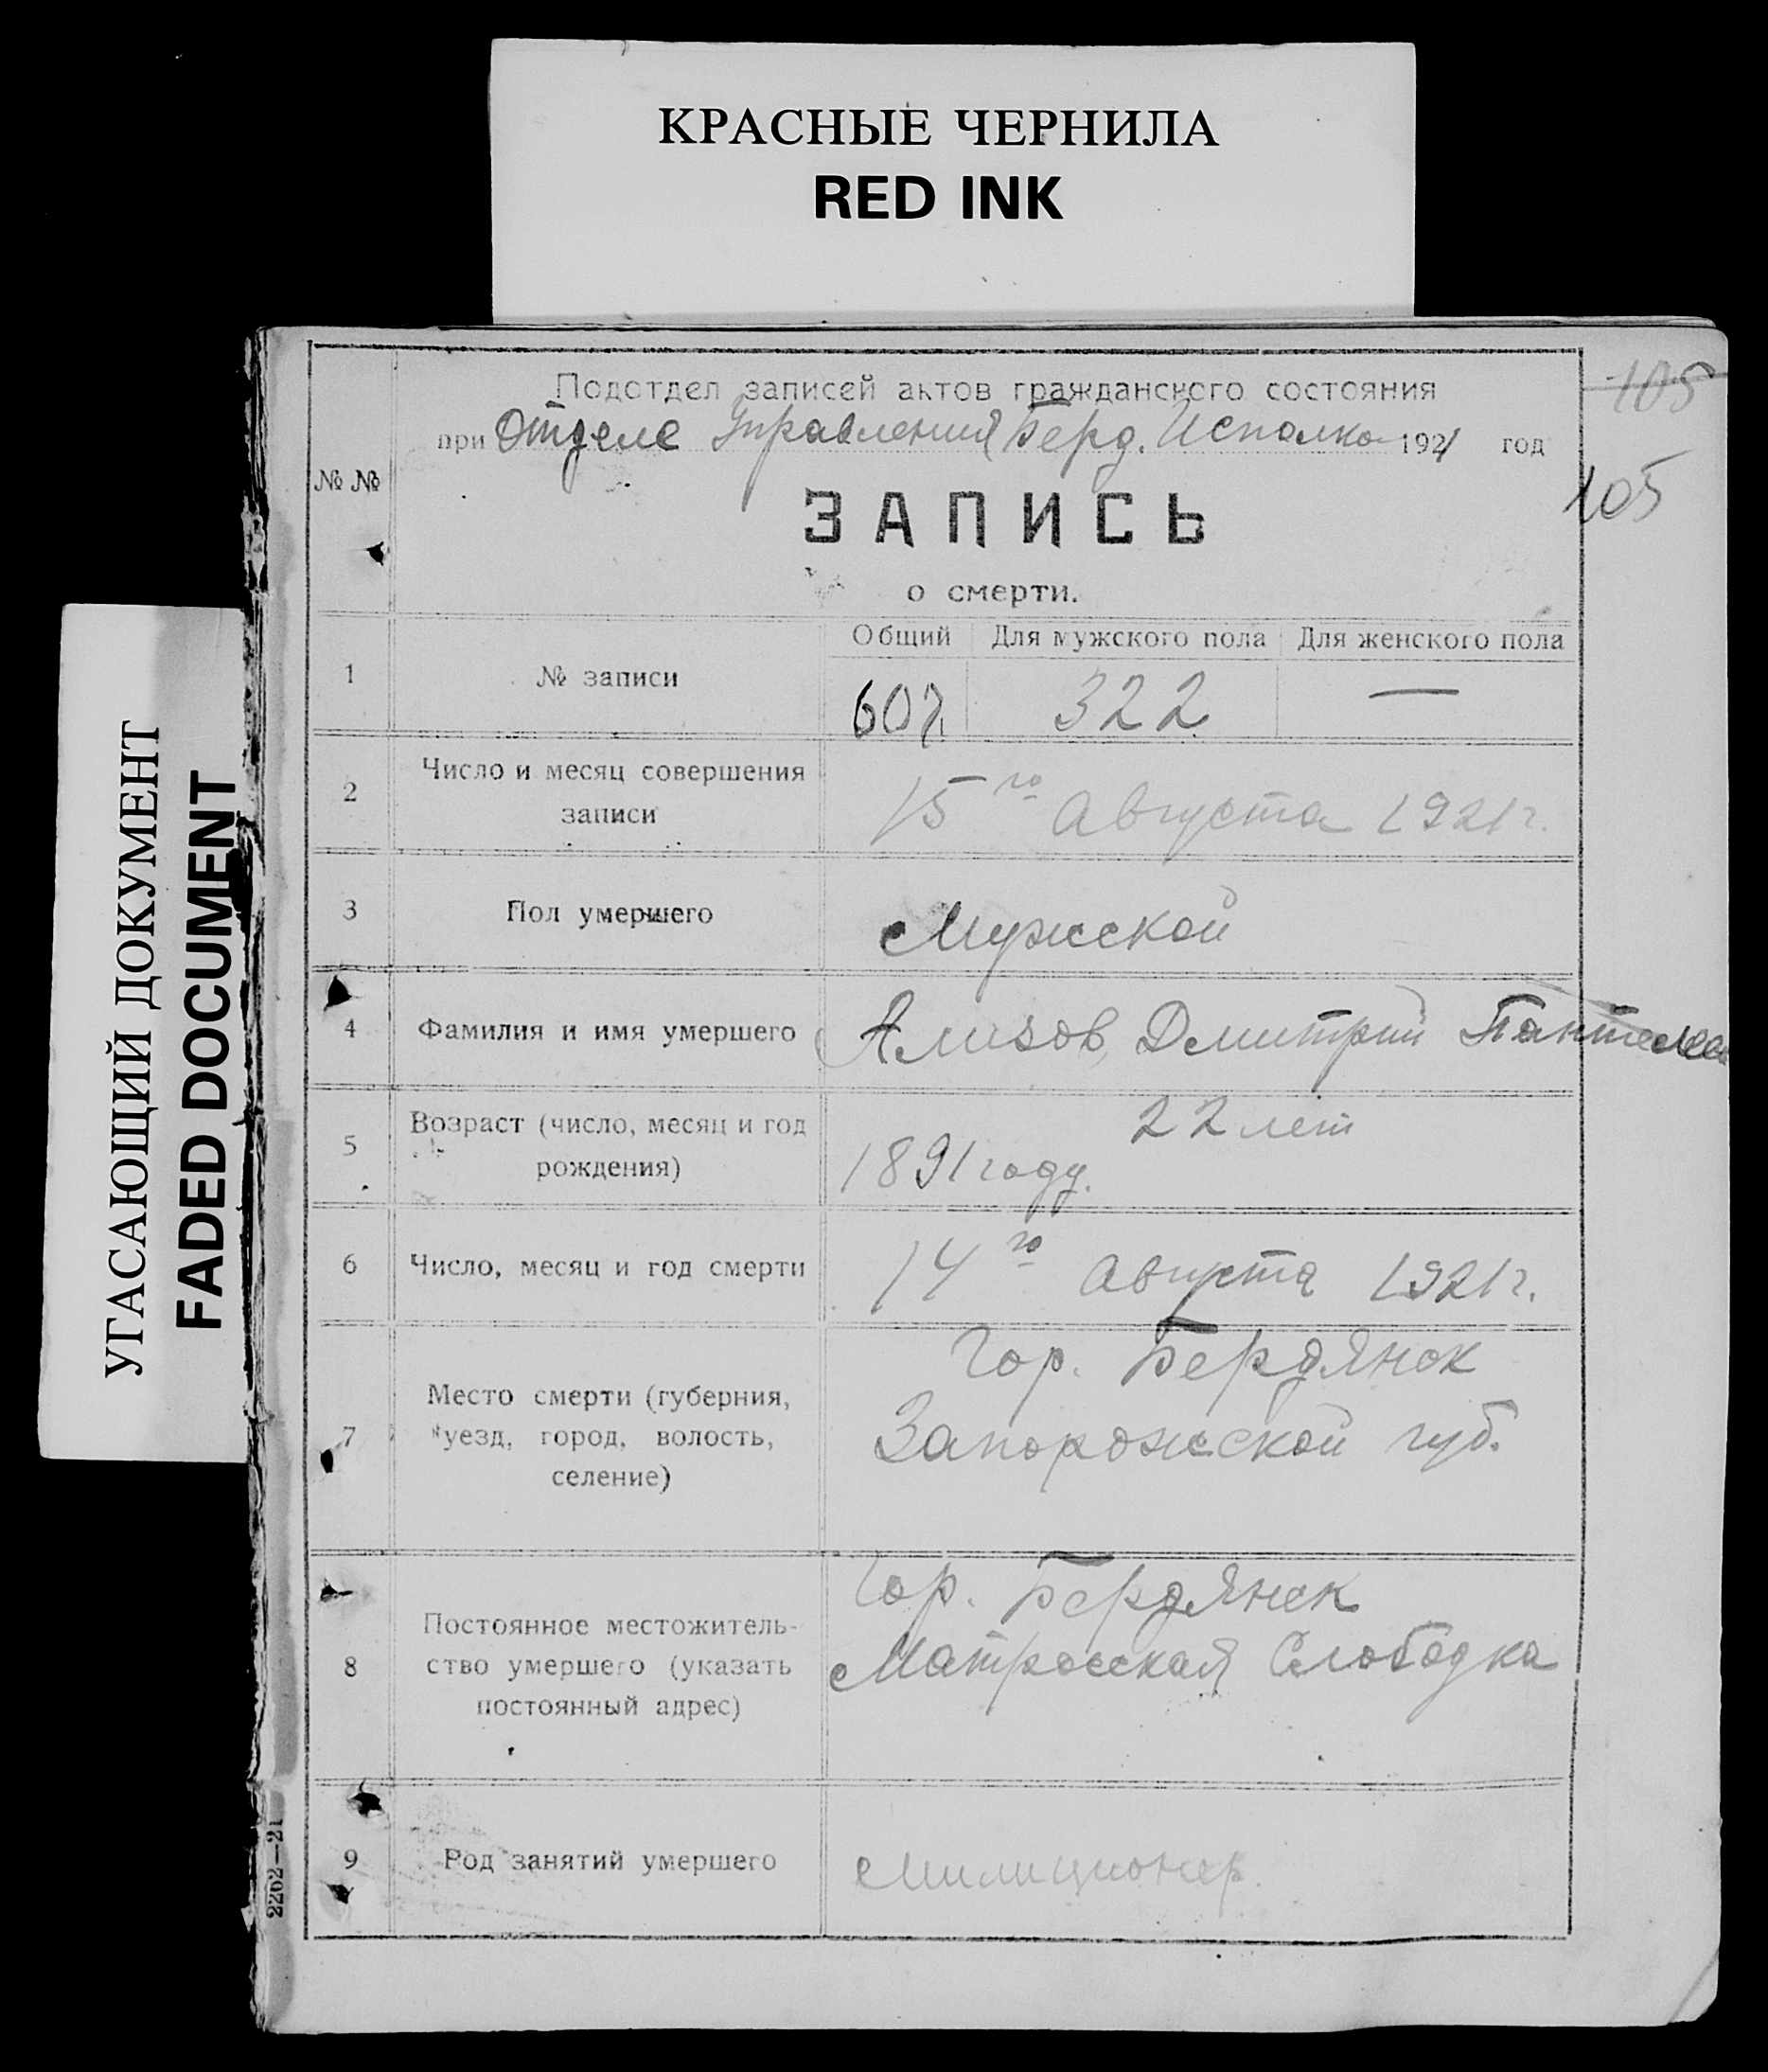 КРАСНЫЕ ЧЕРНИЛА
RED INK
УГАСАЮЩИЙ ДОКУМЕНТ
FADED DOCUMENT
105
Подотдел записей актов гражданского состояния
при Отделе Управления Берд. Исполко 1921 год
105
№ №
ЗАПИСЬ
о смерти.
Общий Для мужского пола Для женского пола
1 № записи 607 322 —
2 Число и месяц совершения
записи
15го Августа 1921 г.
3 Пол умершего Мужской
4 Фамилия и имя умершего Ализов Дмитрий
5 Возраст (число, месяц и год
рождения)
22 лет
1891 году.
6 Число, месяц и год смерти 14го Августа 1921 г.
7 Место смерти (губерния,
уезд, город, волость,
селение)
Гор. Бердянск
Запорожской губ.
8 Постоянное местожитель-
ство умершего (указать
постоянный адрес)
Гор. Бердянск
Матросская Слободка
9 Род занятий умершего Милиционер.
2262—21